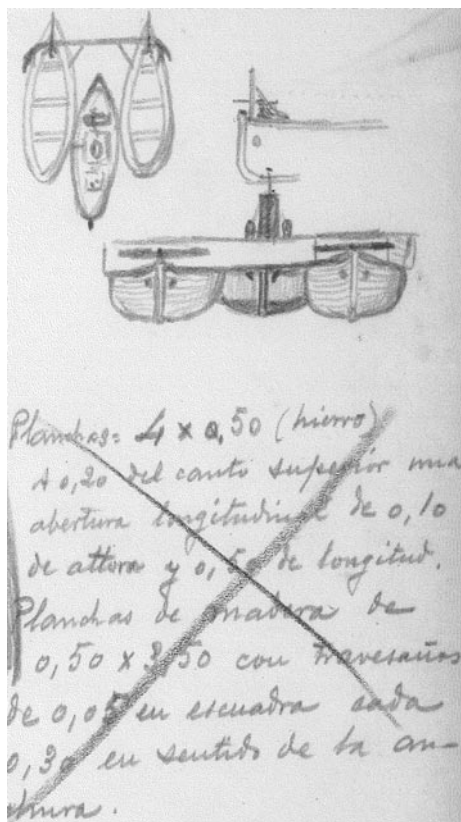 Planchas = 4 x 0,50 (hierro)
A 0,20 del canto superior una
abertura longitudinal de 0,10
de altura y 0,50 de longitud.
Planchas de madera de
0,50 x 3,50 con travesaños
de 0,05 en escuadra cada
0,30 en sentido de la an-
chura.